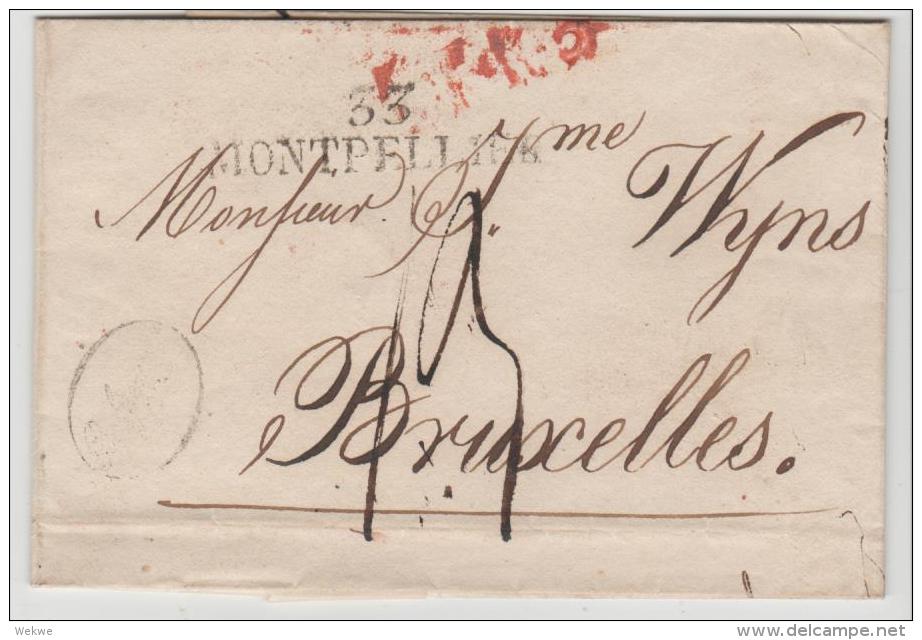 33
MONTPELLIER
Monsieur J.me Wyns
Bruxelles.
Wekwe
delcampe.net